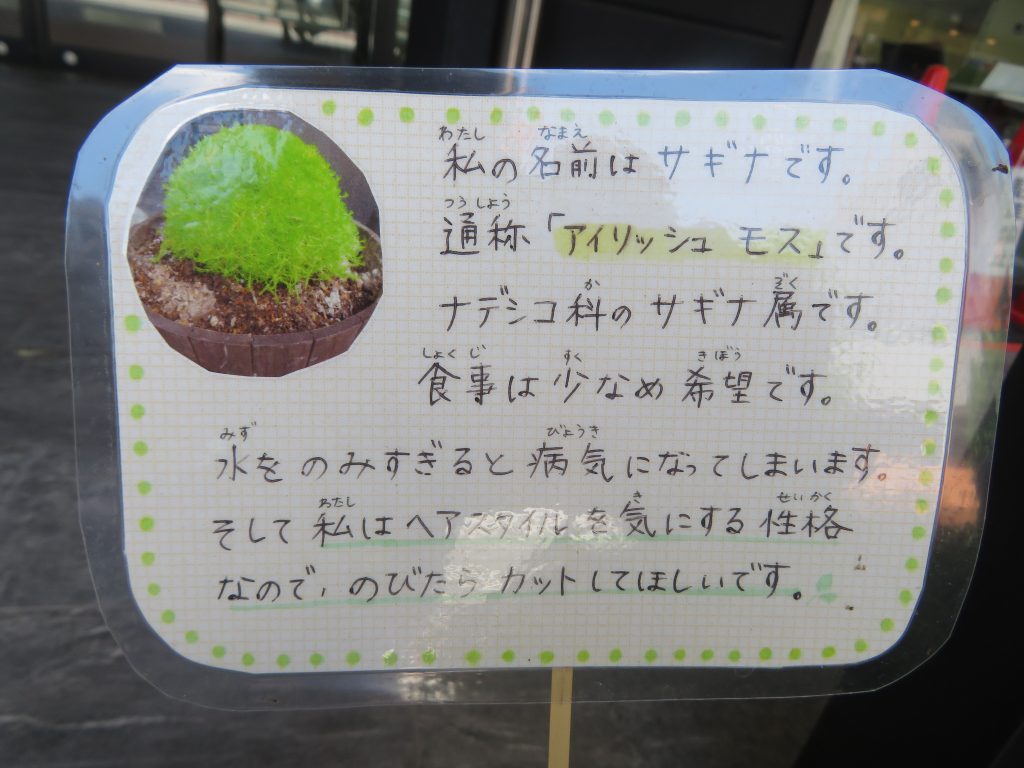 わたし なまえ
私の名前はサギナです。
つうしょう
通称「アイリッシュ モス」です。
か ぞく
ナデシコ科のサギナ属です。
しょくじ すく きぼう
食事は少なめ希望です。
みず びょうき
水をのみすぎると病気になってしまいます。
わたし き せいかく
そして私はヘアスタイルを気にする性格
なので、のびたらカットしてほしいです。